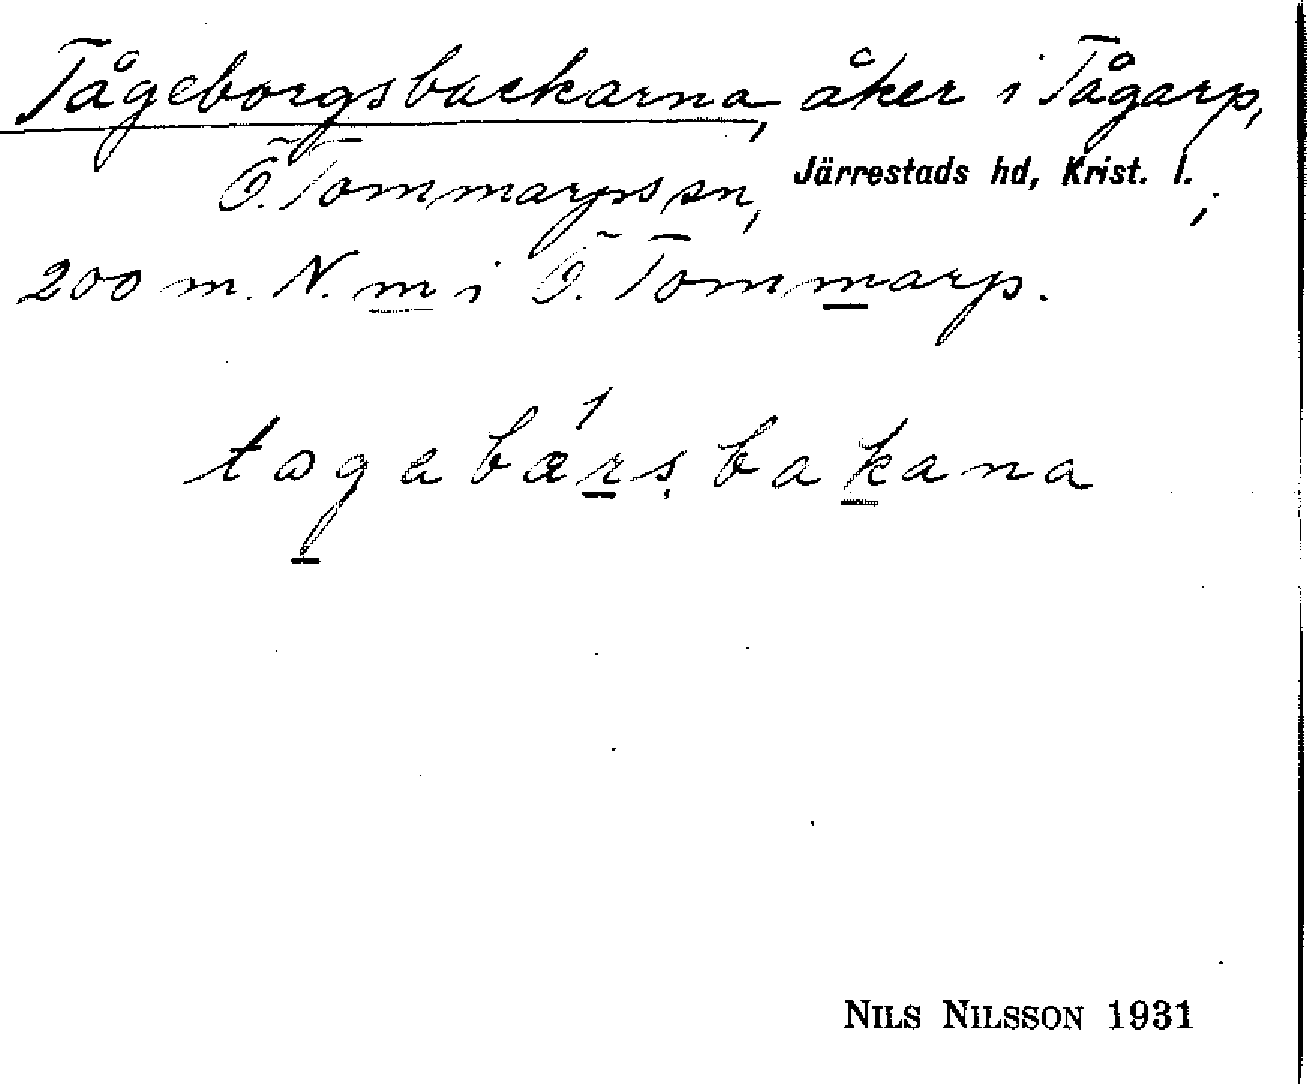 Tågeborgsbackarna, åker i Tågarp,
Ö. Tommarps sn, Järrestads hd, Krist. l.;
200 m. N. m i Ö. Tommarp.
tagabærsbakana
NILS NILSSON 1931